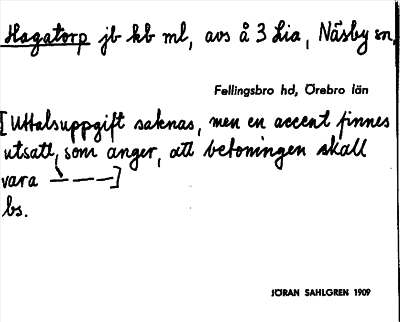 Hagatorp jb kb ml, avs å 3 Lia, Näsby sn,
Fellingsbro hd, Örebro län
[Uttalsuppgift saknas, men en accent finnes
utsatt, som anger, att betoningen skall
vara — — — —]
bs.
JÖRAN SAHLGREN 1909